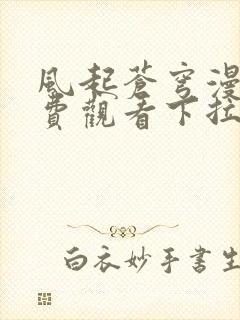 風起蒼穹漫
費觀看下拉
白衣妙手書生